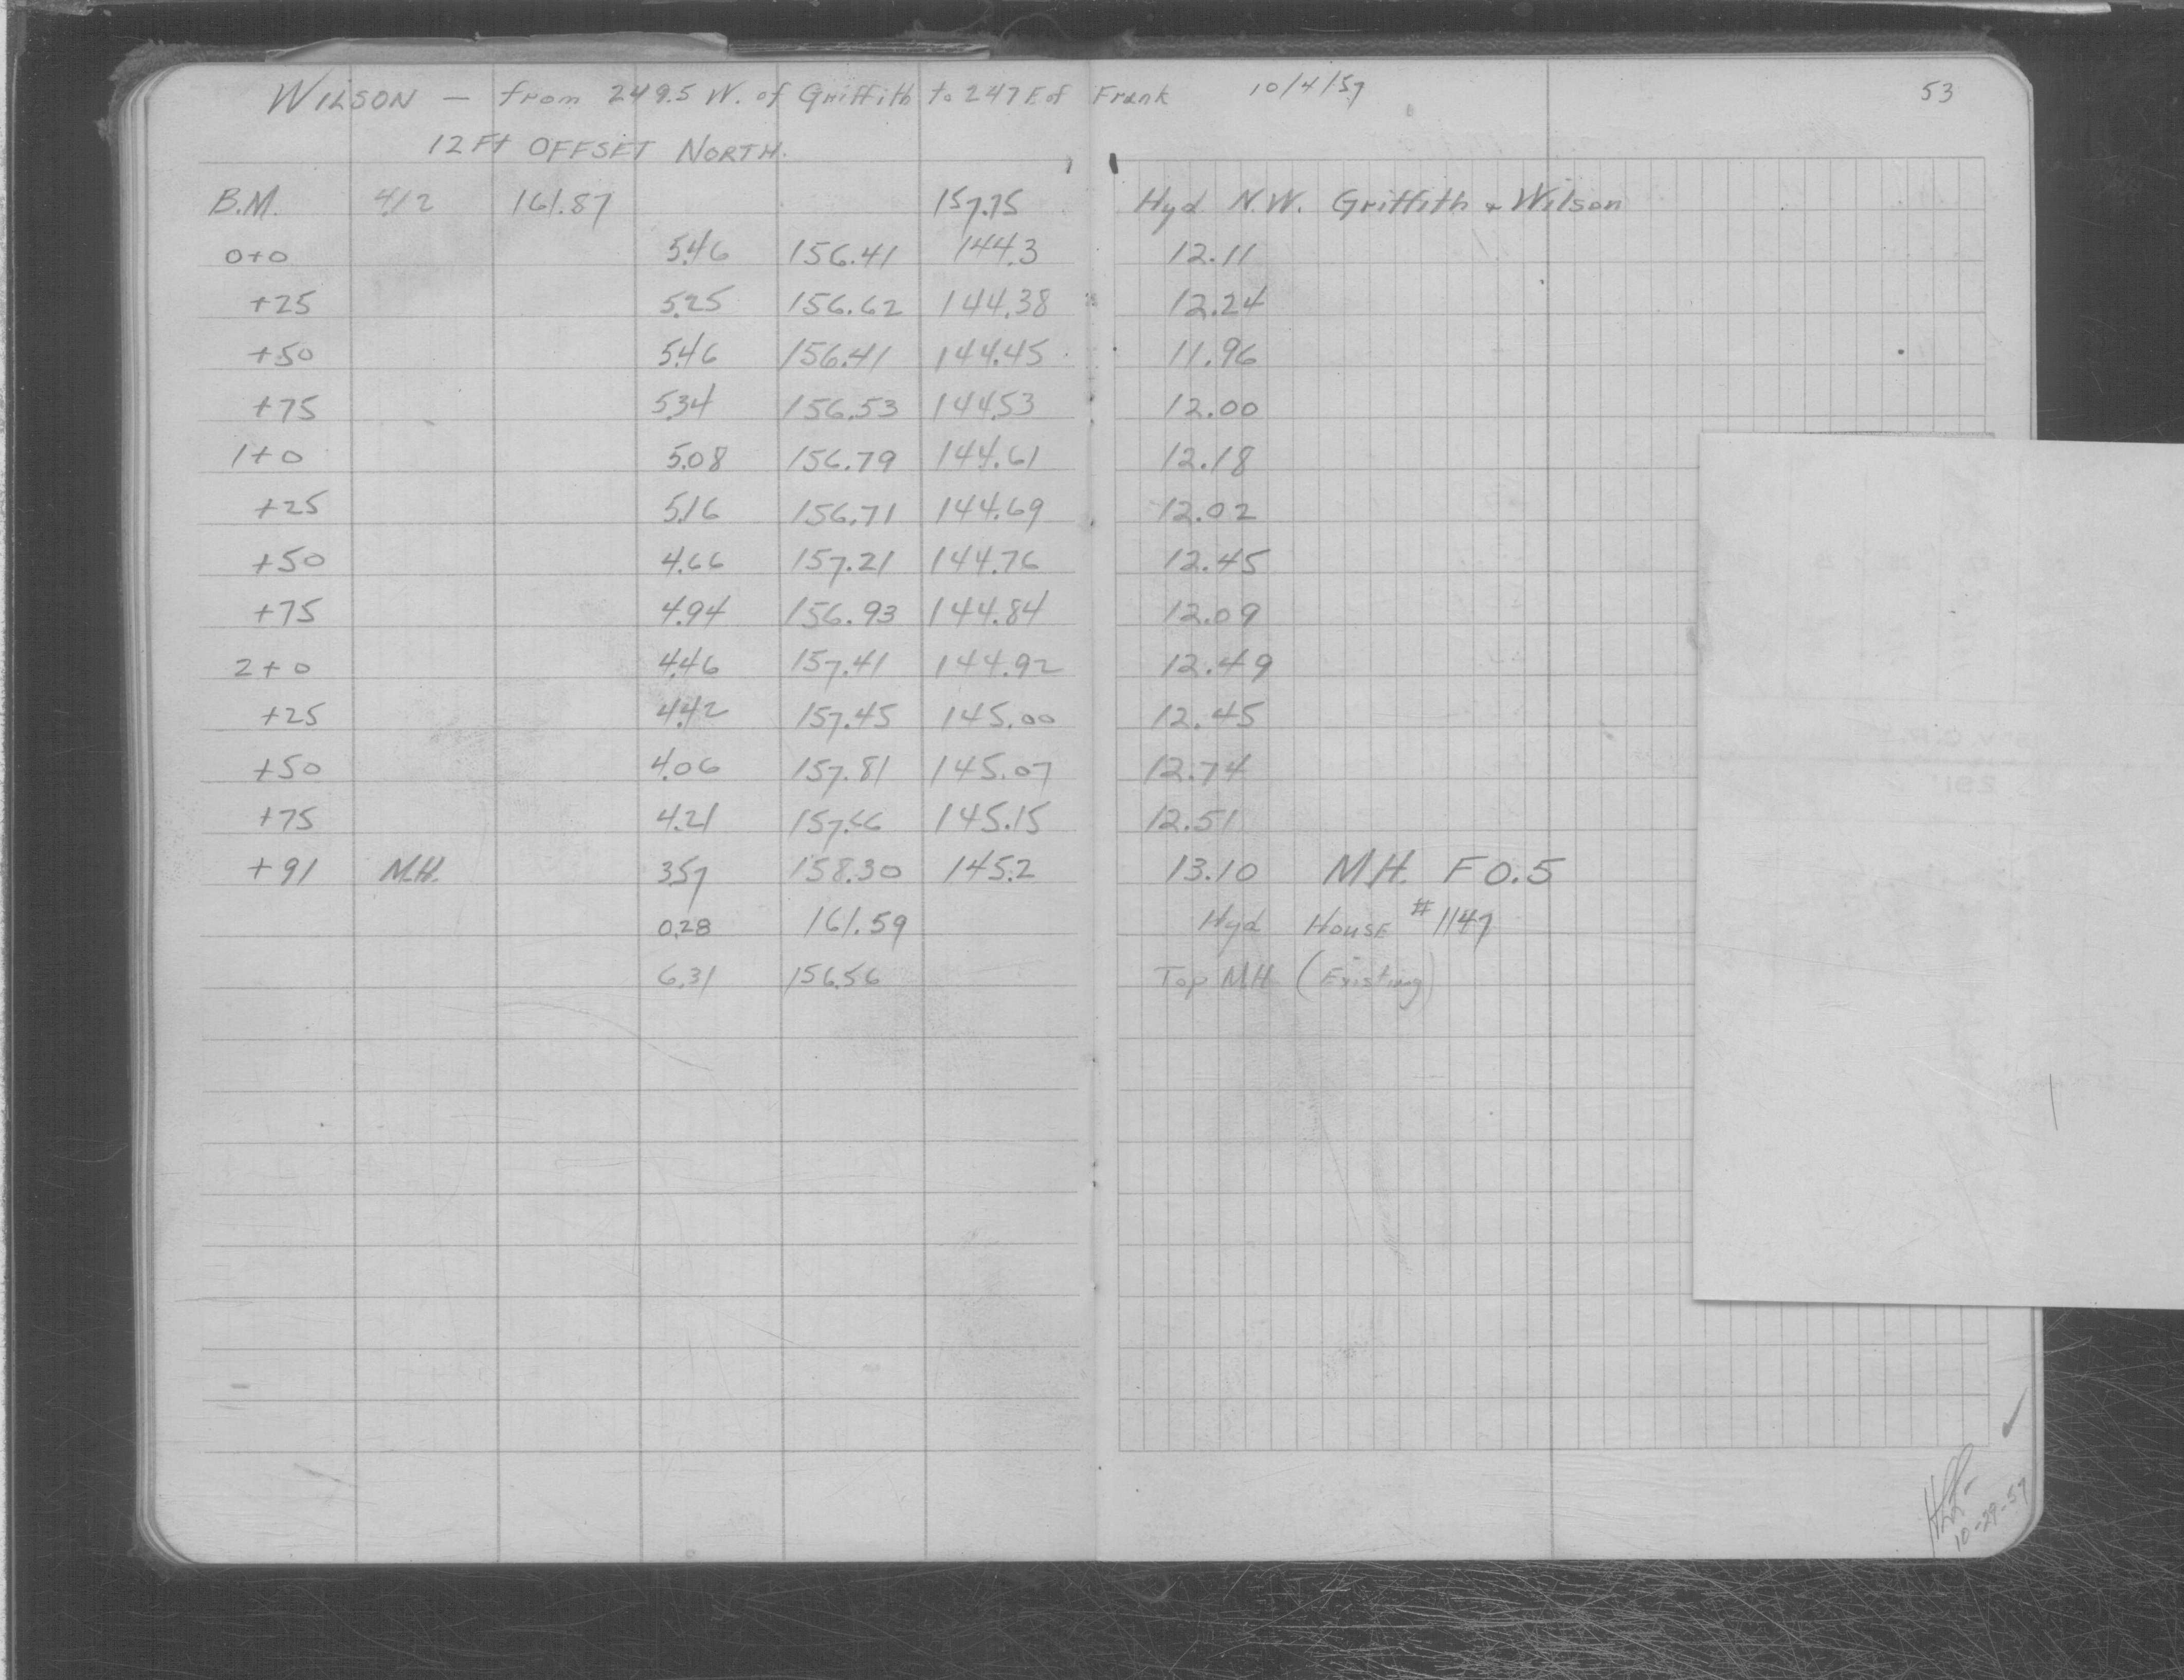 WILSON — from 249.5 W. of Griffith to 247 E of Frank 10/4/57 53
12 Ft OFFSET NORTH.
B.M. 4.12 161.87 157.75 Hyd N.W. Griffith + Wilson
0+0 5.46 156.41 144.3 12.11
+25 5.25 156.62 144.38 12.24
+50 5.46 156.41 144.45 11.96
+75 5.34 156.53 144.53 12.00
1+0 5.08 156.79 144.61 12.18
+25 5.16 156.71 144.69 12.02
+50 4.66 157.21 144.76 12.45
+75 4.94 156.93 144.84 12.09
2+0 4.46 157.41 144.92 12.49
+25 4.42 157.45 145.00 12.45
+50 4.06 157.81 145.07 12.74
+75 4.21 157.66 145.15 12.51
+91 M.H. 3.57 158.30 145.2 13.10 M.H. F 0.5
0.28 161.59 Hyd HOUSE #1147
6.31 156.56 Top M.H. (Existing)
10-29-57